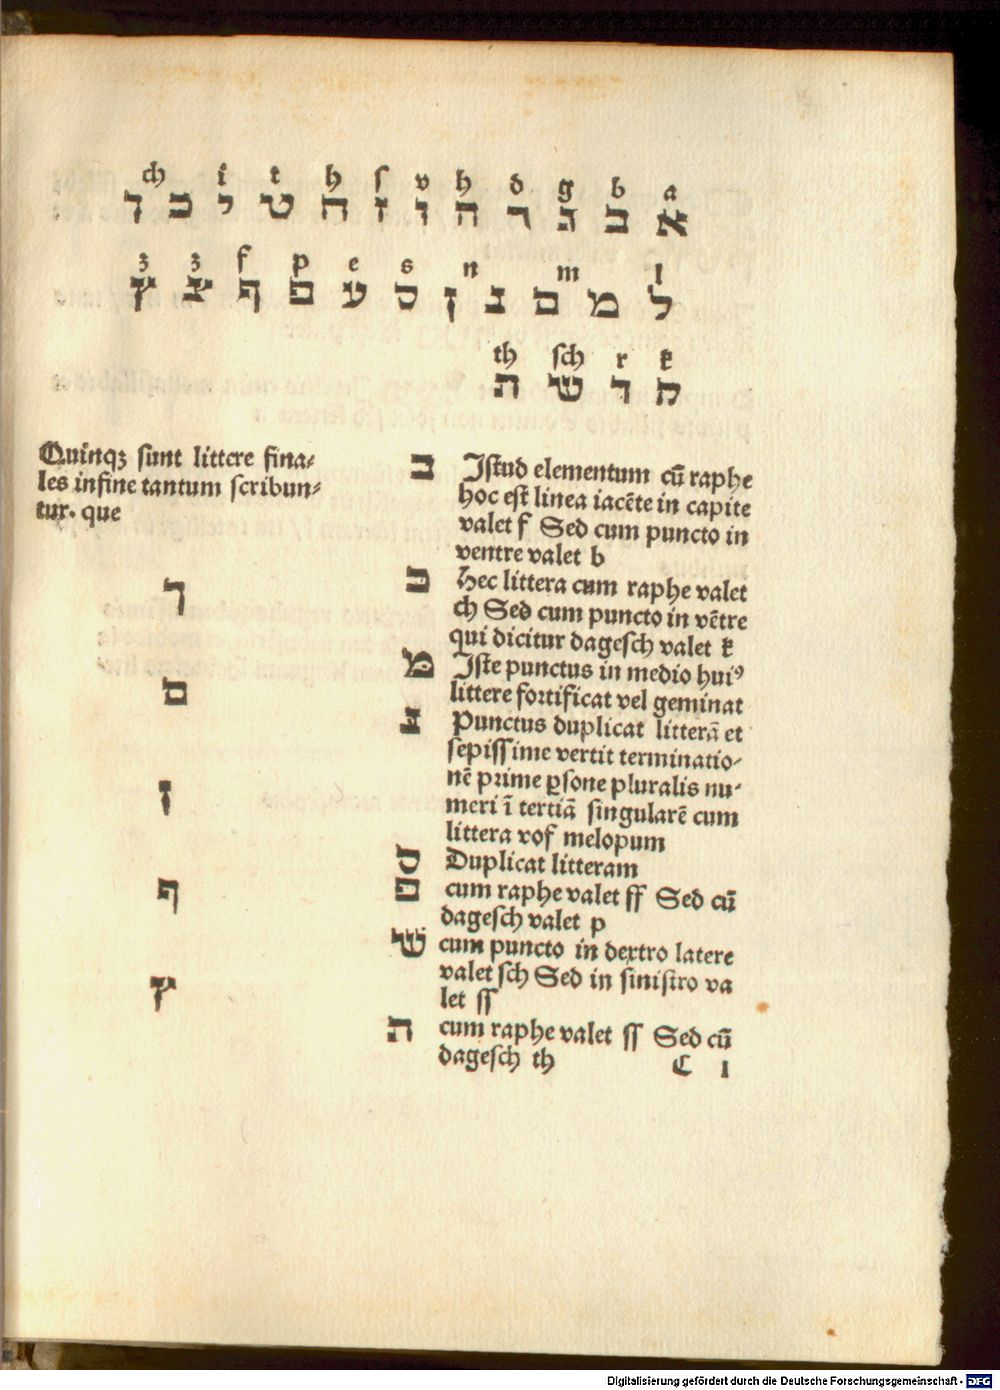 ch i t h ſ v h d g b a
א ב ג ד ה ו ז ח ט י כ ך
ʒ ʒ f p e s n m l
ל מ ם נ ן ס ע פ ף צ ץ
th ſch r k
ק ר ש ת
Quinqꝫ ſunt littere fina⸗
les in fine tantum ſcribun⸗
tur. que
ך
ם
ן
ף
ץ
ב Iſtud elementum cū raphe
hoc eſt linea iacēte in capite
valet f Sed cum puncto in
ventre valet b
כ Hec littera cum raphe valet
ch Sed cum puncto in vētre
qui dicitur dageſch valet k
מ Iſte punctus in medio huiꝰ
littere fortificat vel geminat
נ Punctus duplicat litterā et
ſepiſſime vertit terminatio⸗
nē prime ꝑſone pluralis nu⸗
meri ī tertiā ſingularē cum
littera vof melopum
ס Duplicat litteram
פ cum raphe valet ff Sed cū
dageſch valet p
שׁ cum puncto in dextro latere
valet ſch Sed in ſiniſtro va
let ſſ
ת cum raphe valet ſſ Sed cū
dageſch th
C 1
Digitalisierung gefördert durch die Deutsche Forschungsgemeinschaft - DFG